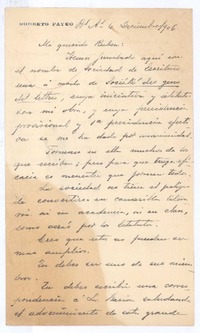 ROBERTO PAYRO Bs. As. 4 Diciembre/906
Mi querido Rubén:
Hemos fundado aquí con
el nombre de Sociedad de Escritores
una á modo de Société des gens
de lettres, cuya iniciativa y
son obra, y cuya presidencia
provisional y la presidencia efecti-
va se me ha dado por unanimidad.
Forman en ella muchos de los
que escriben; pero para que tenga efi-
cacia es menester que formen todos.
La sociedad no tiene el peligro
de convertirse en camarilla litera-
ria ni en academia, ni en clan,
como verás por los Estatutos.
Creo que estos no pueden ser
más amplios.
Tú debes ser uno de sus miem-
bros.
Tú debes escribir una corres-
pondencia á La Nación saludando
el advenimiento de esta grande